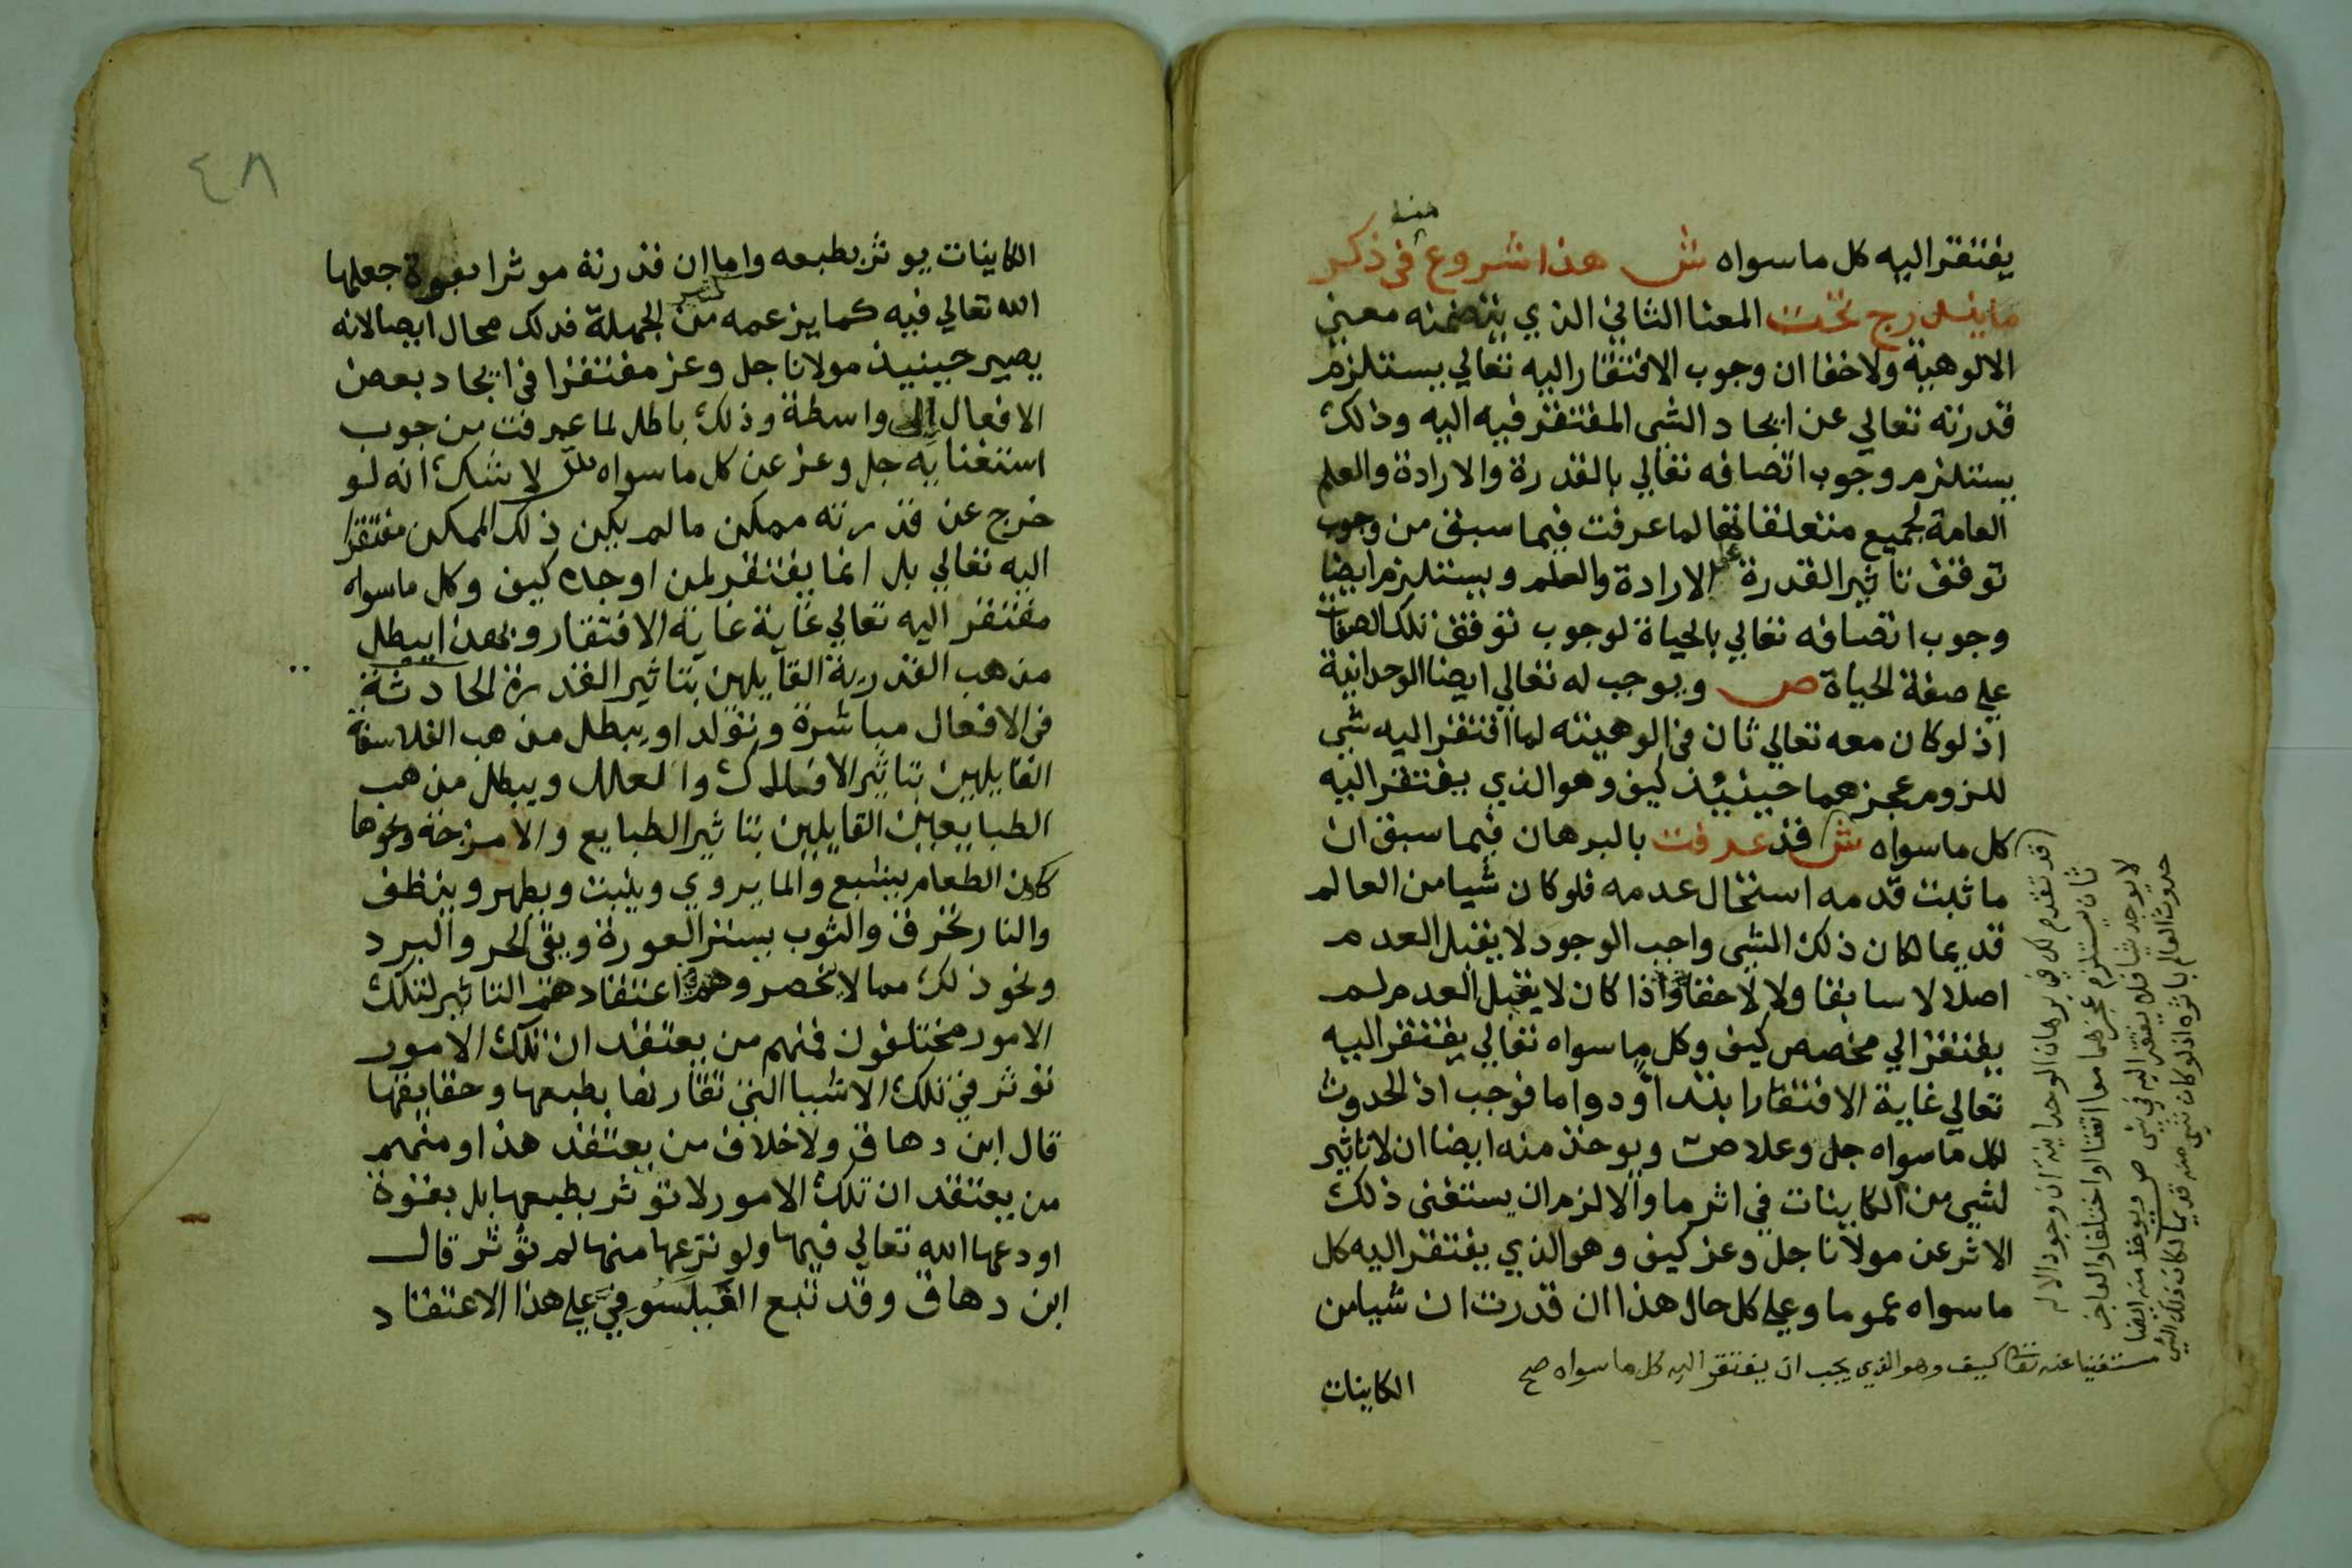 يفتقر اليه كل ما سواه ش هذا شروع في ذكر
منه
ما يندرج تحت المعنا الثاني الذي يتضمنه معني
الالوهية ولا خفا ان وجوب الافتقار اليه تعالي يستلزم
قدرته تعالي عن ايجاد الشي المفتقر فيه اليه وذلك
يستلزم وجوب اتصافه تعالي بالقدرة والارادة والعلم
العامة لجميع متعلقاتها لما عرفت فيما سبق من وجوب
توقف تاثير القدرة علي الارادة والعلم ويستلزم ايضا
وجوب اتصافه تعالي بالحياة لوجوب توقف تلك الصفات
علي صفة الحياة ص ويوجب له تعالي ايضا الوحدانية
اذ لو كان معه تعالي ثان في الوهيته لما افتقر اليه شي
للزوم عجزهما حينيئذ كيف وهو الذي يفتقر اليه
كل ما سواه ش قد عرفت بالبرهان فيما سبق ان
ما ثبت قدمه استحال عدمه فلو كان شيا من العالم
قديما لكان ذلك الشي واجب الوجود لا يقبل العدم
اصلا لا سابقا ولا لاحقا واذا كان لا يقبل العدم لم
يفتقر الي مخصص كيف وكل ما سواه تعالي يفتقر اليه
تعالي غاية الافتقار ابتدا ودواما فوجب اذ الحدوث
لكل ما سواه جل وعلا ص ويوخذ منه ايضا ان لا تاثير
لشي من الكاينات في اثر ما والا لزم ان يستغنى ذلك
الاثر عن مولانا جل وعز كيف وهو الذي يفتقر اليه كل
ما سواه عموما وعلي كل حال هذا ان قدرت ان شيا من
الكاينات
قد تقدم لك في برهان الوحدانية ان وجود الاله
ثان يستلزم عجزهما معا اتفقا او اختلفا والعاجز
لا يوجد شيا فلا يفتقر اليه في شي ص ويوخذ منه ايضا
حدوث العالم باثره اذ لو كان شي منه قديما لكان ذلك الشي
مستغنيا عنه تعالى كيف وهو الذي يجب ان يفتقر اليه كل ما سواه صح
٤٨
الكاينات يوثر بطبعه واما ان قدرته موثرا بقوة جعلها
الله تعالي فيه كما يزعمه كثير من الجهلة فدلك محال ايضا لانه
يصير حينيذ مولانا جل وعز مفتقرا في ايجاد بعض
الافعال الى واسطة وذلك باطل لما عرفت من جوب
استغنايه جل وعز عن كل ما سواه لا شك انه لو
خرج عن قدرته ممكن ما لم يكن ذلك الممكن مفتقرا
اليه تعالي بل انما يفتقر لمن اوجده كيف وكل ما سواه
مفتقر اليه تعالي غاية غاية الافتقار وبهذا يبطل
مذهب القدرية القآيلين بتاثير القدرة الحادثة
في الافعال مباشرة وتولد او يبطل مذهب الفلاسفة
القايلين بتاثير الافلاك والعلل ويبطل مذهب
الطبايعيين القايلين بتاثير الطبايع والامزجة ونحوها
كان الطعام يشبع والما يروي وينبت ويطهر وينظف
والنار تحرق والثوب يستر العورة ويقي الحر والبرد
ونحو ذلك مما لا ينحصر وهم في اعتقادهم التاثير لتلك
الامور مختلفون فمنهم من يعتقد ان تلك الامور
توثر في تلك الاشيا التي تقارنها بطبعها وحقايقها
قال ابن دهاق ولا خلاف من يعتقد هذا ومنهم
من يعتقد ان تلك الامور لا توثر بطبعها بل بقوة
اودعها الله تعالي فيها ولو نزعها منها لم تؤثر قال
ابن دهاق وقد تبع الفيلسوفي علي هذا الاعتقاد